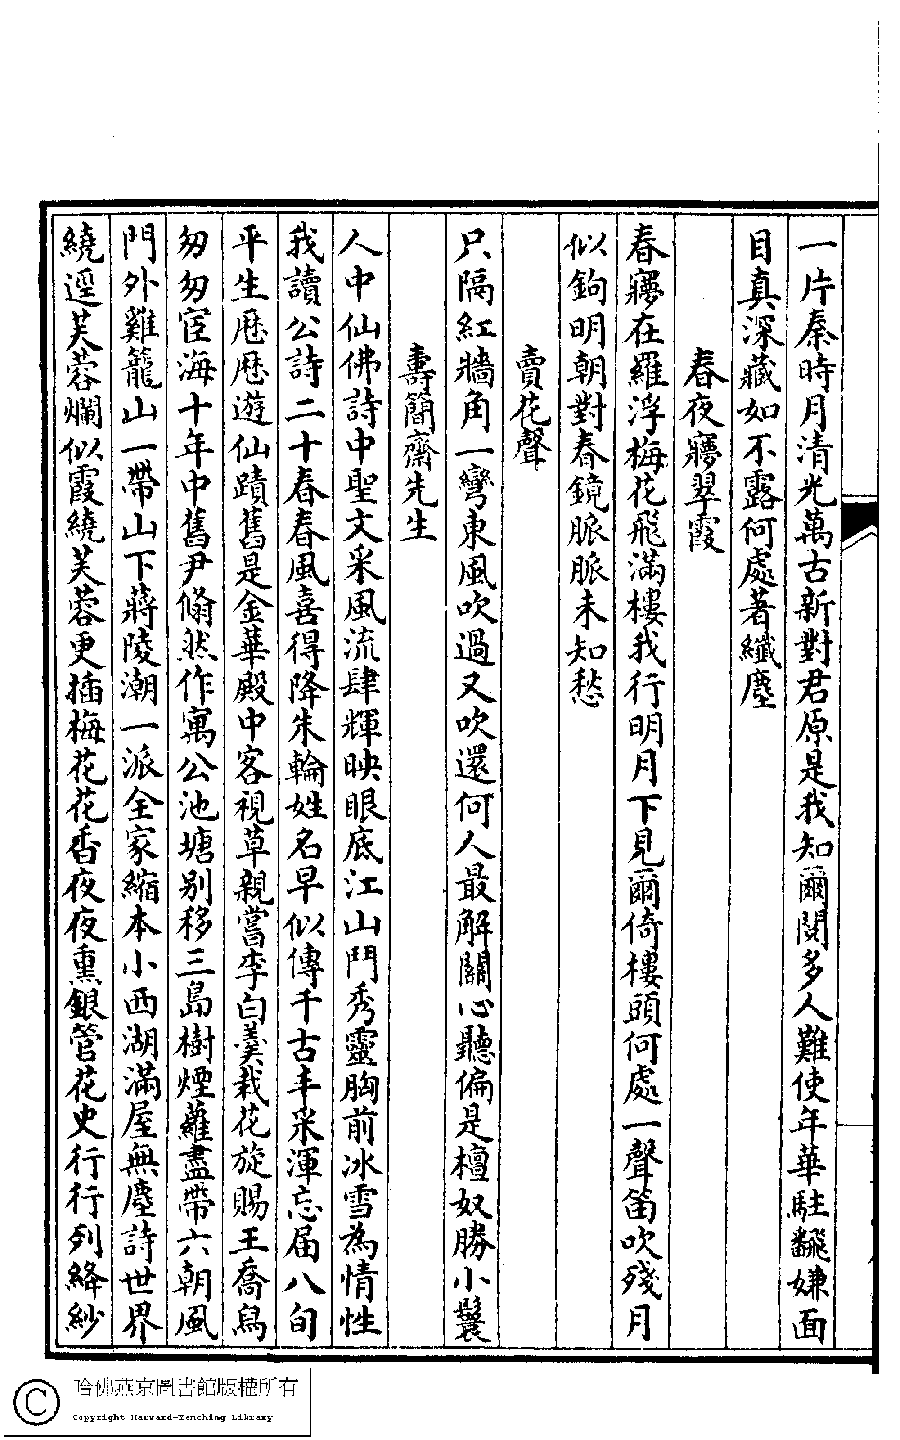 一片秦時月清光萬古新對君原是我知爾閱多人難使年華駐飜嫌面
目真深藏如不露何處著纖塵
春夜夢翠霞
春夢在羅浮梅花飛滿樓我行明月下見爾倚樓頭何處一聲笛吹殘月
似鉤明朝對春鏡脈脈未知愁
賣花聲
只隔紅牆角一彎東風吹過又吹還何人最解關心聽偏是檀奴勝小鬟
壽簡齋先生
人中仙佛詩中聖文采風流肆輝映眼底江山門秀靈胸前冰雪為情性
我讀公詩二十春春風喜得降朱輪姓名早似傳千古丰采渾忘屆八旬
平生歷歷遊仙蹟舊是金華殿中客視草親嘗李白羹栽花旋賜王喬舄
匆匆宦海十年中舊尹翛然作寓公池塘別移三島樹煙蘿盡帶六朝風
門外雞籠山一帶山下蔣陵潮一派全家縮本小西湖滿屋無塵詩世界
繞逕芙蓉爛似霞繞芙蓉更插梅花花香夜夜熏銀管花史行行列絳紗
哈佛燕京圖書館版權所有
Copyright Harvard-Yenching Library